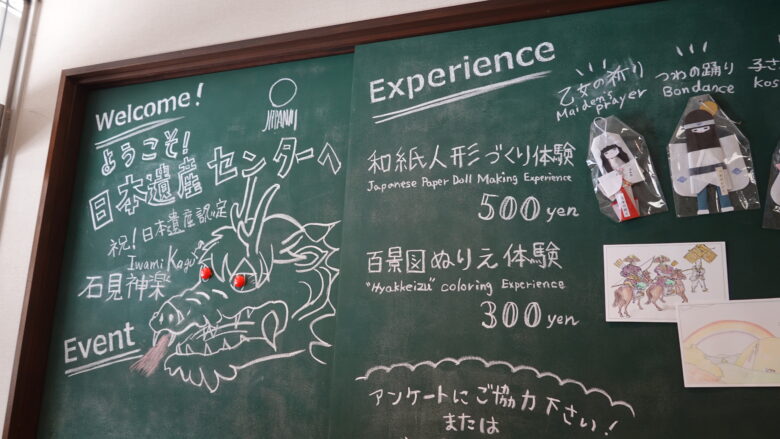 Welcome!
ようこそ!
日本遺産センターへ
祝!日本遺産認定
Iwami Kagura
石見神楽
Event
Experience
和紙人形づくり体験
Japanese Paper Doll Making Experience
500 yen
百景図ぬりえ体験
"Hyakkeizu" coloring Experience
300 yen
アンケートにご協力下さい!
または
乙女の祈り
Maiden's
prayer
つわの踊り
Bondance
子さ
Kos